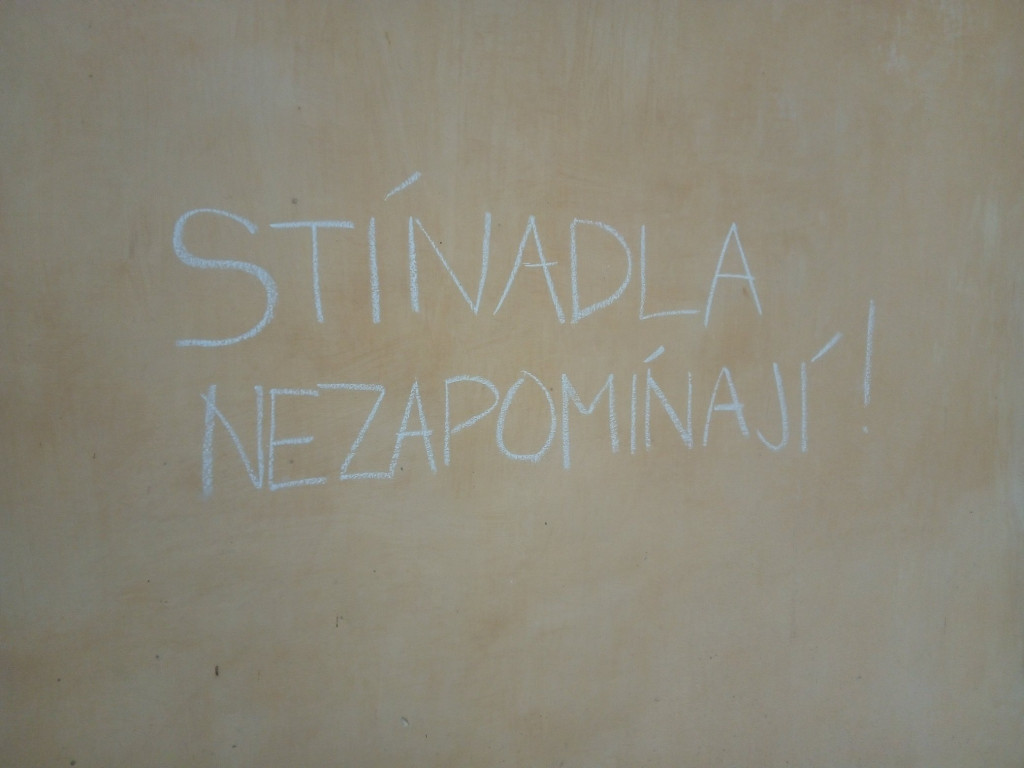 STÍNADLA
NEZAPOMÍNAJÍ!